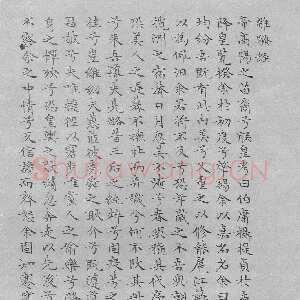 離騷經
帝高陽之苗裔兮朕皇考曰伯庸攝提貞
降皇覽揆余於初度兮肇錫余以嘉名名余曰
均紛吾既有此內美兮又重之以脩能扈江
以為佩汩余若將不及兮恐年歲之不吾與朝
洲之宿莽日月忽其不淹兮春與秋其代序
恐美人之遲暮不撫壯而棄穢兮何不改其此
兮來吾導夫先路昔三后之純粹兮固衆芳之
桂兮豈維紉夫蕙茝彼堯舜之耿介兮既遵道
兮夫唯捷徑以窘步惟黨人之偷樂兮路
恐皇輿之敗績忽奔走以先後兮
不察余之中情兮反信讒而齌怒余固知謇
shufawang.cn